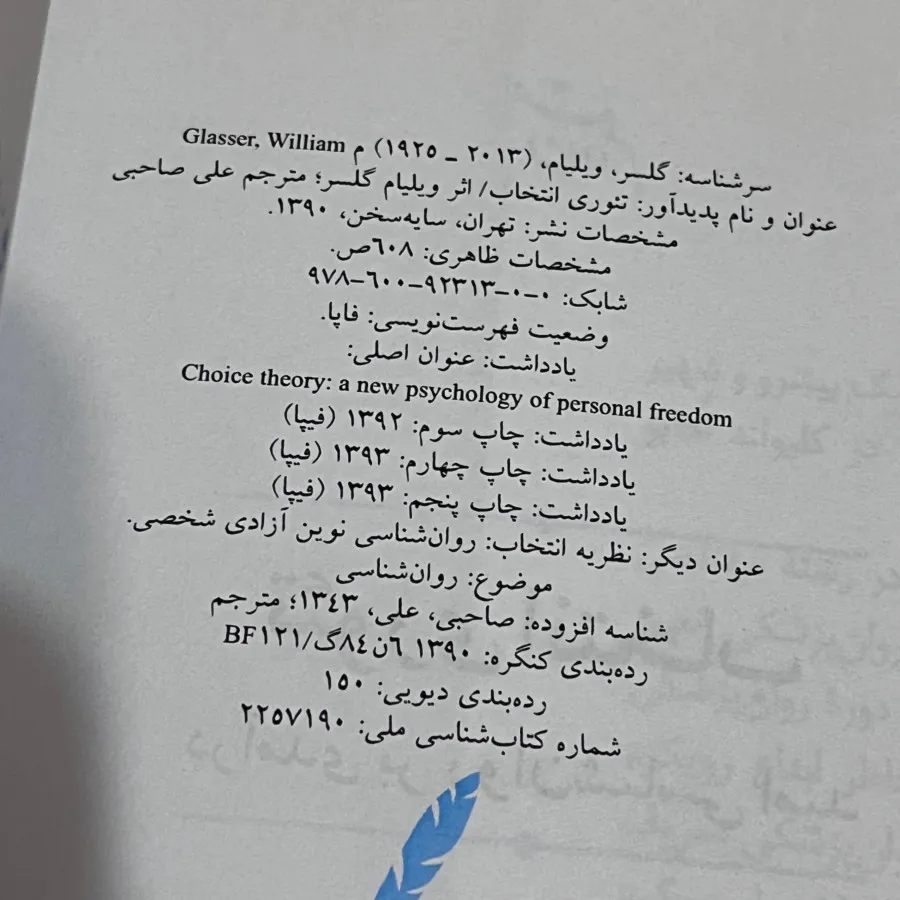 سرشناسه: گلسر، ویلیام، (۲۰۱۳ ـ ۱۹۲۵) م Glasser, William
عنوان و نام پدیدآور: تئوری انتخاب/ اثر ویلیام گلسر؛ مترجم علی صاحبی
مشخصات نشر: تهران، سایه‌سخن، ۱۳۹۰.
مشخصات ظاهری: ۶۰۸ص.
شابک: ۰–۰–۹۲۳۱۳–۶۰۰–۹۷۸
وضعیت فهرست‌نویسی: فاپا.
یادداشت: عنوان اصلی:
Choice theory: a new psychology of personal freedom
یادداشت: چاپ سوم: ۱۳۹۲ (فیپا)
یادداشت: چاپ چهارم: ۱۳۹۳ (فیپا)
یادداشت: چاپ پنجم: ۱۳۹۳ (فیپا)
عنوان دیگر: نظریه انتخاب: روان‌شناسی نوین آزادی شخصی.
موضوع: روان‌شناسی
شناسه افزوده: صاحبی، علی، ۱۳۴۳؛ مترجم
رده‌بندی کنگره: ۱۳۹۰ ۶ن۸۴گ/BF۱۲۱
رده‌بندی دیویی: ۱۵۰
شماره کتاب‌شناسی ملی: ۲۲۵۷۱۹۰